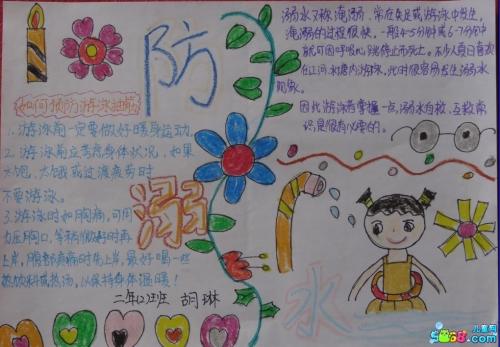 防
溺
水
如何预防游泳抽筋
1.游泳前一定要做好暖身运动。
2.游泳前应考虑身体状况,如果
太饱、太饿或过渡疲劳时
不要游泳。
3.游泳时如胸痛,可用
力压胸口,等稍微好时再
上岸,腹部疼痛时先上岸,最好喝一些
热饮料或热汤,以保持身体温暖!
二年(2)班 胡琳
溺水又称淹溺,常在失足或游泳中发生,
淹溺的过程很快,一般4-5分钟或6-7分钟
就可因呼吸心跳停止而死亡。不少人夏日喜欢
在江河水塘内游泳,此时很容易发生溺水
现象。
因此游泳者掌握一点溺水自救、互救常
识是很有必要的。
儿童网
5068.com